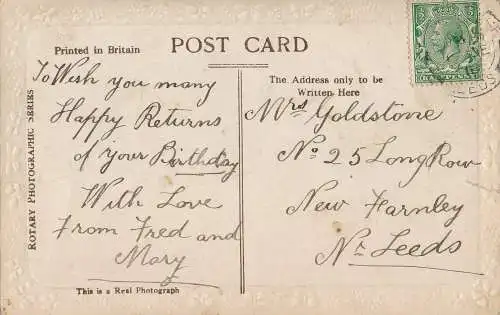 Printed in Britain
POST CARD
ROTARY PHOTOGRAPHIC SERIES
To Wish you many
Happy Returns
of your Birthday
With Love
From Fred and
Mary
This is a Real Photograph
The Address only to be
Written Here
Mrs Goldstone
No 25 Long Row
New Farnley
Nr Leeds